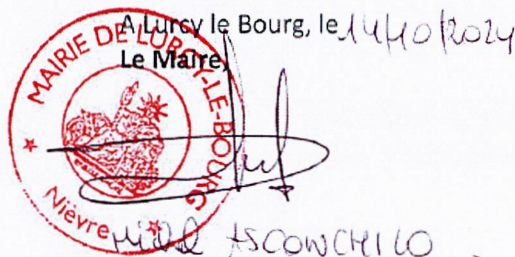 A Lurcy le Bourg, le 14/10/2024
Le Maire,
MAIRIE DE LURCY-LE-BOURG
Nièvre